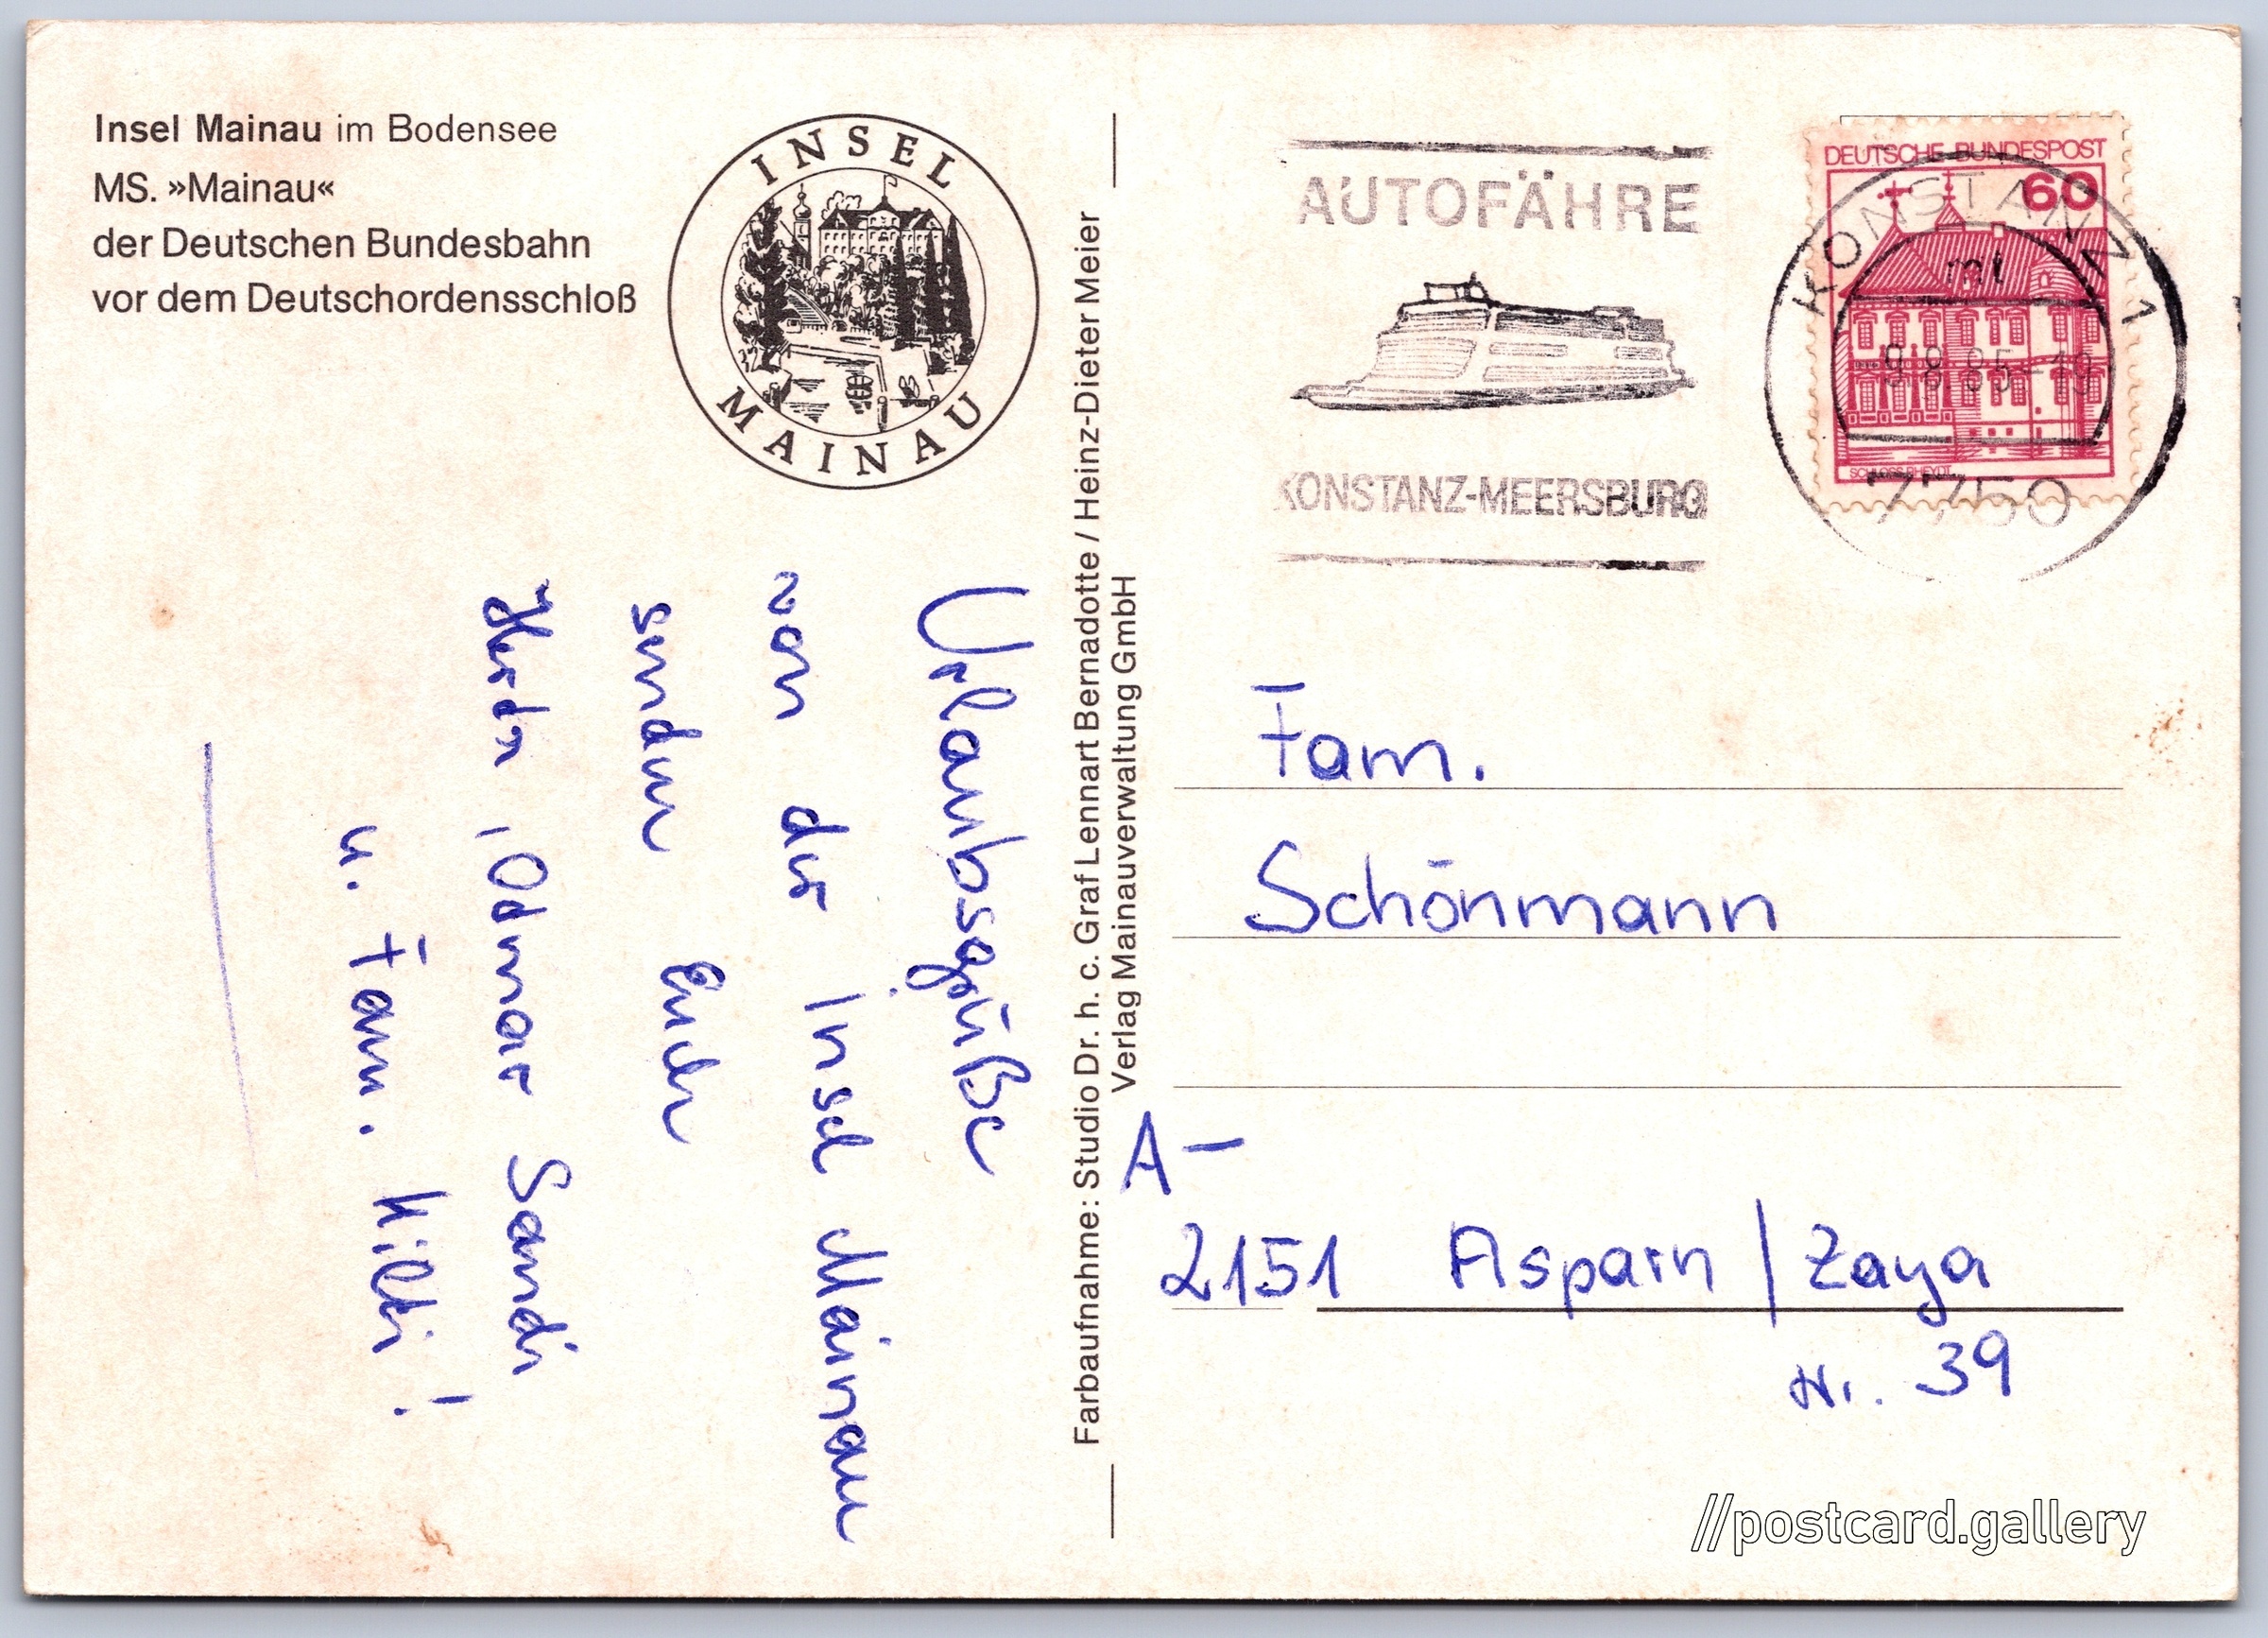 Insel Mainau im Bodensee
MS. »Mainau«
der Deutschen Bundesbahn
vor dem Deutschordensschloß
INSEL
MAINAU
Urlaubsgrüße
von der Insel Mainau
senden Euch
Odmar Sandi
u. Fam. Hilbi!
Farbaufnahme: Studio Dr. h. c. Graf Lennart Bernadotte / Heinz-Dieter Meier
Verlag Mainauverwaltung GmbH
AUTOFÄHRE
KONSTANZ-MEERSBURG
DEUTSCHE BUNDESPOST
60
SCHLOSS RHEYDT
KONSTANZ 1
mt
-9.8.85-19
7750
Fam.
Schönmann
A-
2151 Asparn / Zaya
Nr. 39
//postcard.gallery